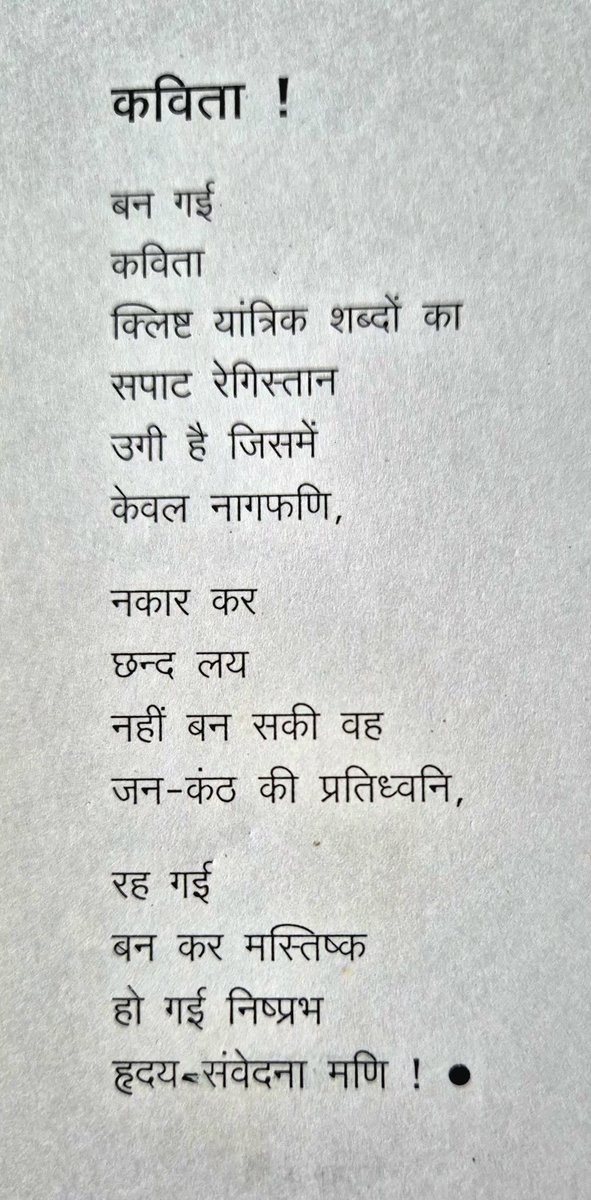 कविता !
बन गई
कविता
क्लिष्ट यांत्रिक शब्दों का
सपाट रेगिस्तान
उगी है जिसमें
केवल नागफणि,
नकार कर
छन्द लय
नहीं बन सकी वह
जन-कंठ की प्रतिध्वनि,
रह गई
बन कर मस्तिष्क
हो गई निष्प्रभ
हृदय-संवेदना मणि ! ●